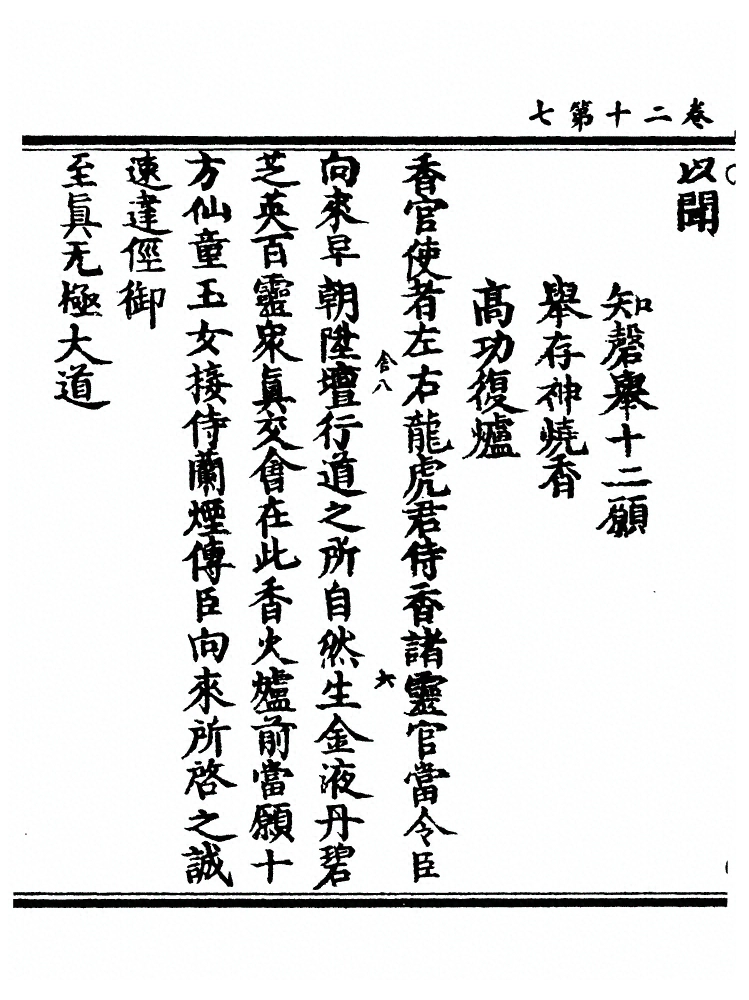 卷二十第七
以聞
知磬舉十二願
舉存神燒香
高功復爐
香官使者左右龍虎君侍香諸靈官當令臣
舍八
六
向來早朝陞壇行道之所自然生金液丹碧
芝英百靈衆眞交會在此香火爐前當願十
方仙童玉女接侍蘭煙傳臣向來所啓之誠
速達徑御
至眞无極大道